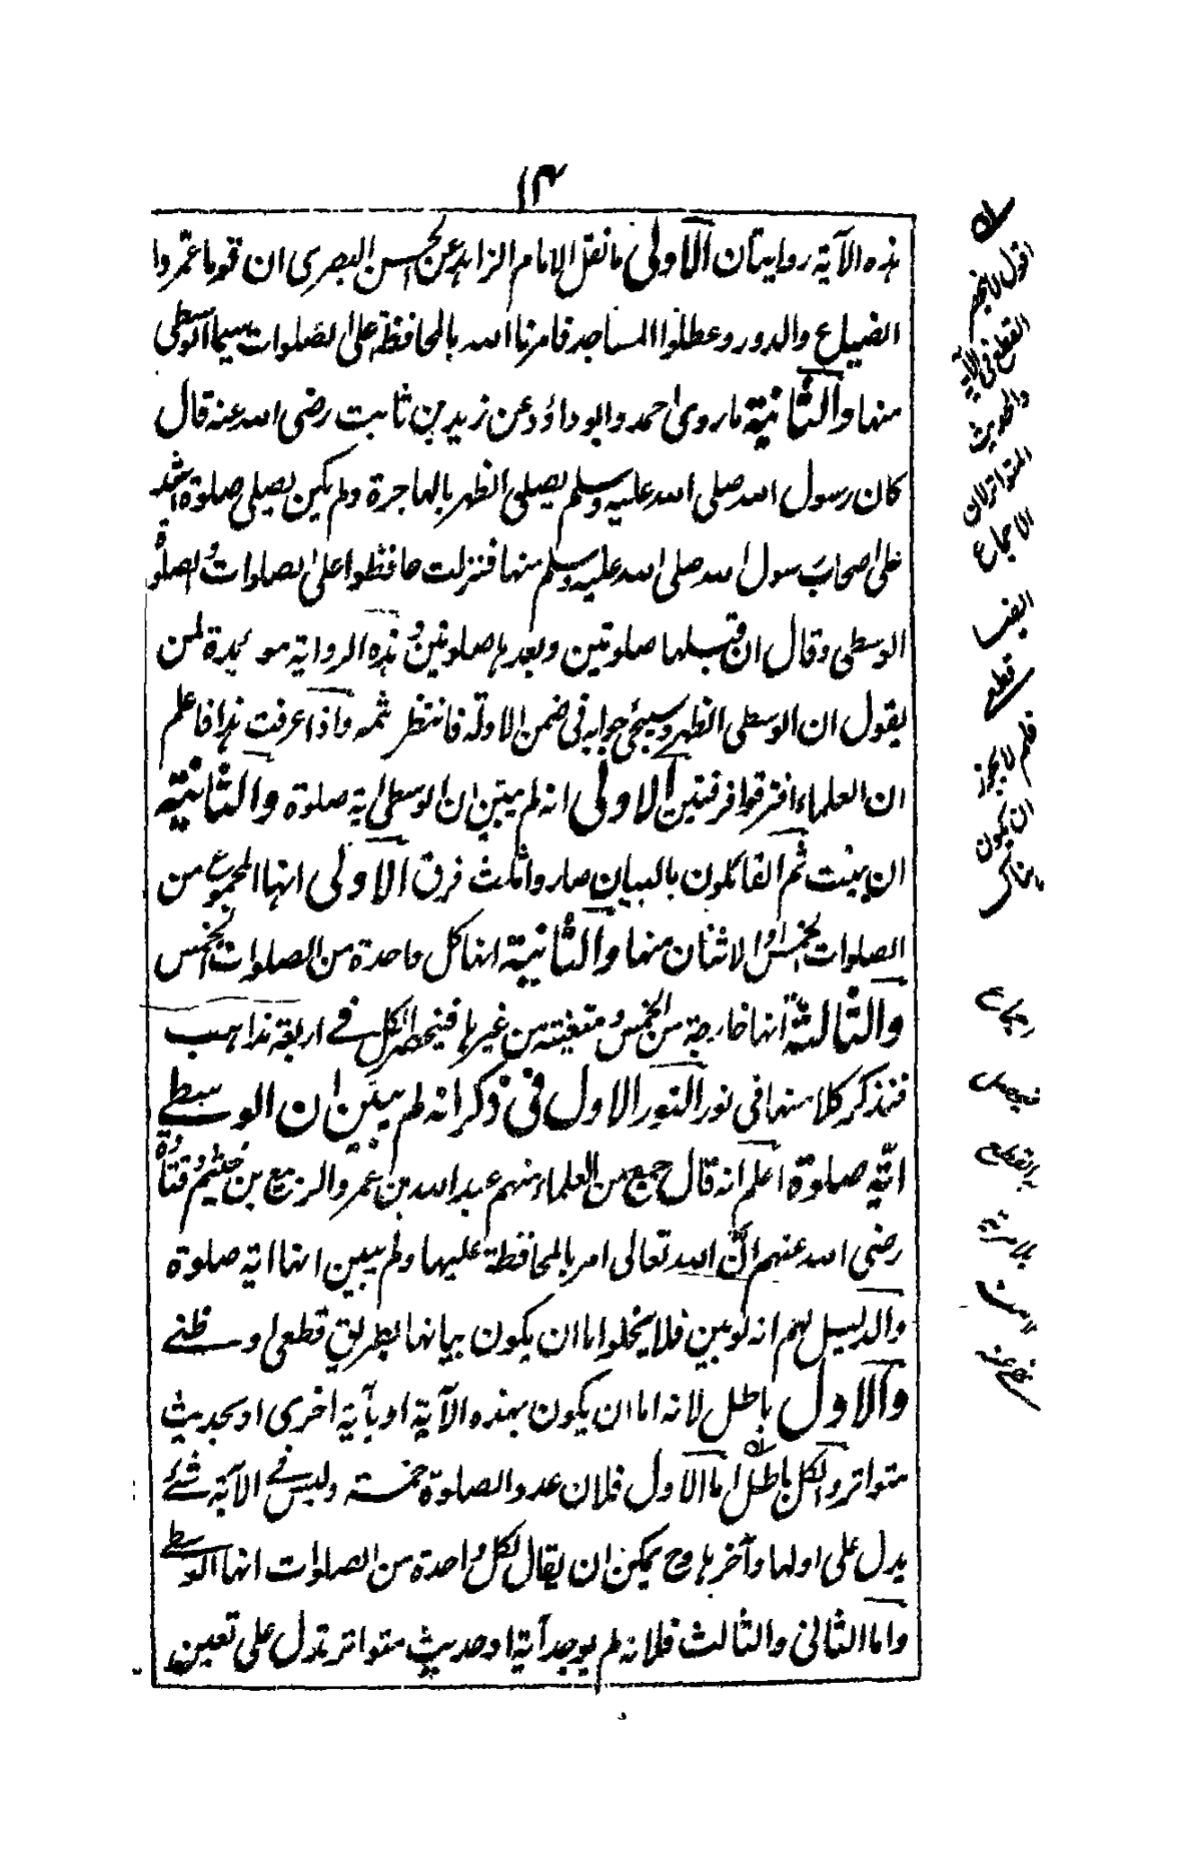 ۱۴
هذه الآية روايتان الاولى ما نقل الامام الزاهد عن الحسن البصرى ان قوما عمّروا
الضياع والدور وعطلوا المساجد فامرنا الله بالمحافظة على الصلوات سيما الوسطى
منها والثانية ما روى احمد وابوداؤد عن زيد بن ثابت رضى الله عنه قال
كان رسول الله صلى الله عليه وسلم يصلى الظهر بالهاجرة ولم يكن يصلى صلوة اشد
على اصحاب رسول الله صلى الله عليه وسلم منها فنزلت حافظوا على الصلوات والصلوة
الوسطى وقال ان قبلها صلوتين وبعدها صلوتين وهذه الرواية مؤيدة لمن
يقول ان الوسطى الظهر وسيجئ جوابه فى ضمن الادلة فانتظر ثمه واذا عرفت هذا فاعلم
ان العلماء افترقوا فرقتين الاولى انه لم يبين ان الوسطى اية صلوة والثانية
ان بينت ثم القائلون بالبيان صاروا ثلث فرق الاولى انها المجموع من
الصلوات الخمس او الاثنان منها والثانية انها كل واحدة من الصلوات الخمس
والثالثة انها خارجة من الخمس ومتعينة من غيرها فينحصر الكل فى اربعة مذاهب
فنذكر كلا منها فى نور النور الاول فى ذكر انه لم يبين ان الوسطى
ايّة صلوة اعلم انه قال جمع من العلماء منهم عبد الله بن عمر والربيع بن خثيم وقتادة
رضى الله عنهم انّ الله تعالى امر بالمحافظة عليها ولم يبين انها اية صلوة
والدليل لهم انه لو بين فلا يخلو اما ان يكون بيانها بطريق قطعى او ظنى
والاول باطل لانه اما ان يكون بهذه الآية او بآية اخرى او بحديث
متواتر والكل باطل اما الاول فلان عدد الصلوة خمسة وليس فى الآية شئ
يدل على اولها وآخرها وح يمكن ان يقال لكل واحدة من الصلوات انها الوسطى
واما الثانى والثالث فلانه لم يوجد آية او حديث متواتر تدل على تعين
اقول لا ينحصر
القطع فى الآية
والحديث
المتواتر لان
الاجماع
ايضا
قطعى
فلم لا يجوز
ان يكون
هناك
اجماع
فيحصل
القطع